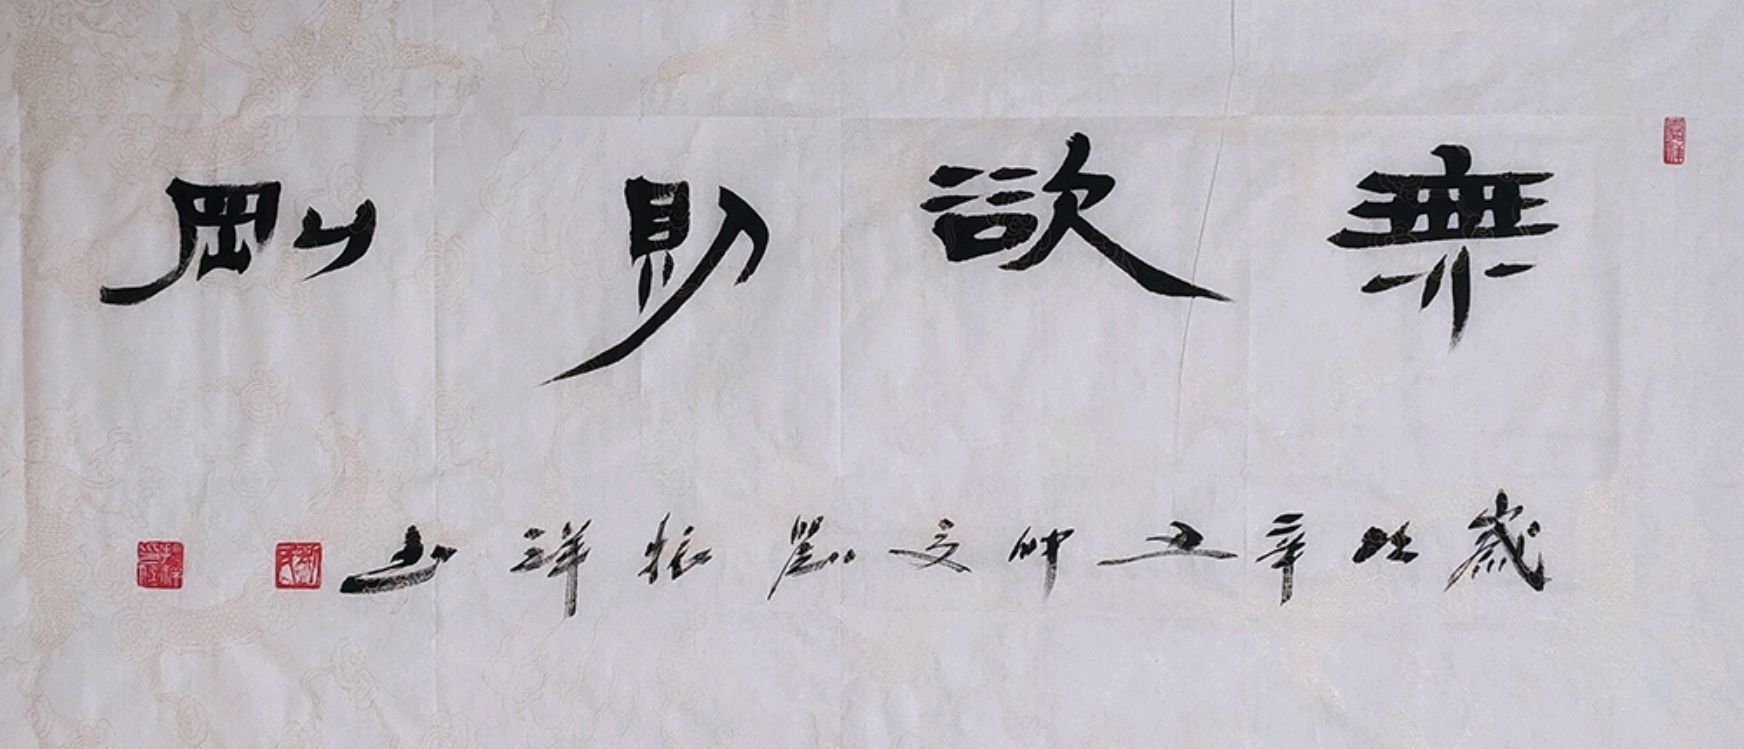 無欲則剛
歲在辛丑仲夏劉振祥書